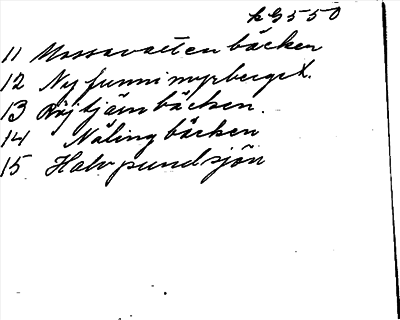 LG 550
11 Mossavatten bäcken
12 Nyfunnimyrberget.
13 Röjtjärn bäcken.
14 Näling bäcken
15 Halvpundsjön